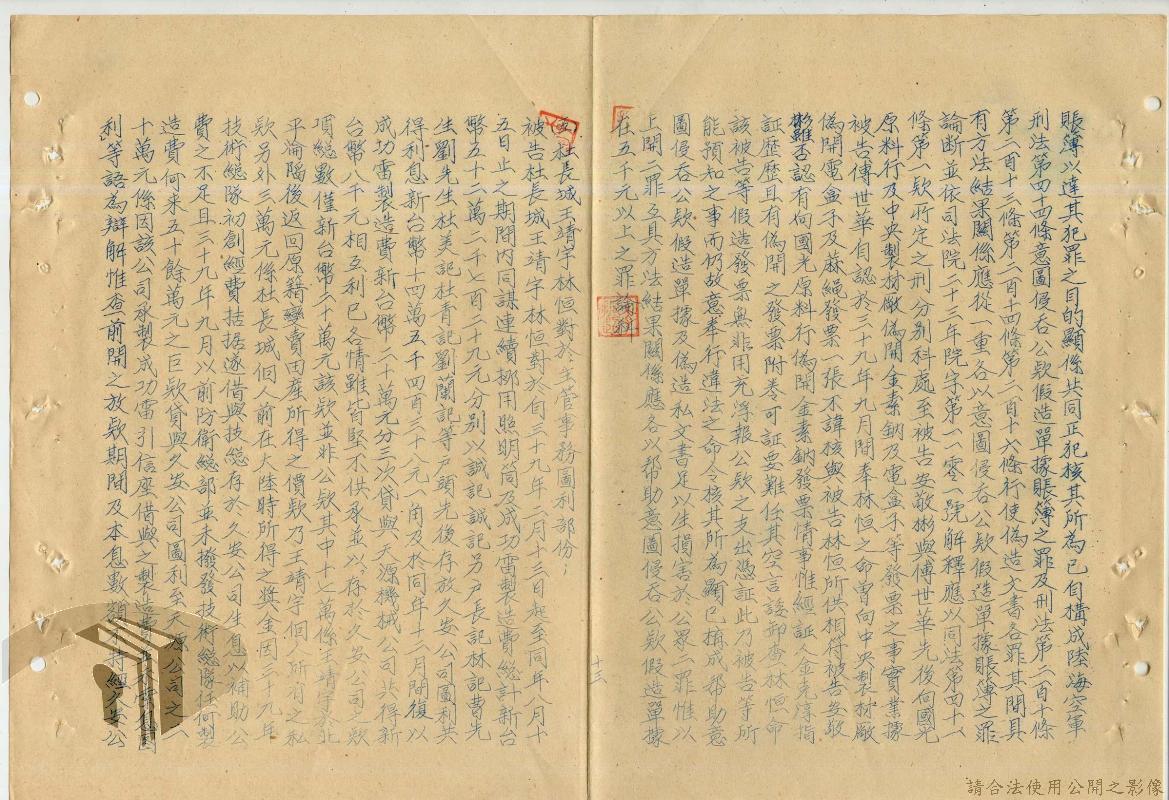 賬簿以達其犯罪之目的顯係共同正犯核其所為已自構成陸海空軍
刑法第四十四條意圖侵吞公欵假造單據賬簿之罪及刑法第二百十條
第二百十三條第二百十四條第二百十六條行使偽造文書各罪其間具
有方法結果關係應從一重各以意圖侵吞公欵假造單據賬簿之罪
論斷並依司法院二十三年院字第一一零一號解釋應以同法第四十二
條第一欵所定之刑分別科處至被告安敬彬與傅世華先後向國光
原料行及中央製材廠偽開金素鈉及電盒子等發票之事實業據
被告傅世華自認於三十九年九月間奉林恒之命曾向中央製材廠
偽開電盒子及蔴繩發票一張不諱核與被告林恒所供相符被告安敬
彬雖否認有向國光原料行偽開金素鈉發票情事惟經証人金克淳指
証歷歷且有偽開之發票附卷可証要難任其空言諉卸查林恒命
該被告等假造發票無非用充浮報公欵之支出憑証此乃被告等所
能預知之事而仍故意奉行違法之命令核其所為顯已搆成帮助意
圖侵吞公欵假造單據及偽造私文書足以生損害於公眾二罪惟以
上開二罪互具方法結果關係應各以帮助意圖侵吞公欵假造單據
在五千元以上之罪論科
十三
五、杜長城王靖宇林恒對於主管事務圖利部份：
被告杜長城王靖宇林恒對於自三十九年二月十三日起至同年八月十
五日止之期間內同謀連續挪用照明筒及成功雷製造費総計新台
幣五十二萬二千七百二十九元分別以誠記誠記另戶長記林記曹先
生劉先生杜美記杜青記劉蘭記等戶頭先後存放久安公司圖利共
得利息新台幣十四萬五千四百三十八元一角及於同年十二月間復以
成功雷製造費新台幣二十萬元分三次貸與天源機械公司共得新
台幣八千元相互利已各情雖皆堅不供承並以存於久安公司之欵
項総數僅新台幣二十萬元該欵並非公欵其中十七萬係王靖宇於北
平淪陷後返回原籍變賣田產所得之價欵乃王靖宇個人所有之私
欵另外三萬元係杜長城個人前在大陸時所得之奬金因三十九年
技術総隊初創經費拮据遂借與技総存於久安公司生息以補助公
費之不足且三十九年九月以前防衛総部並未撥發技術総隊任何製
造費何來五十餘萬元之巨欵貸與久安公司圖利至天源公司之二
十萬元係因該公司承製成功雷引信座借與之製造費並無圖
利等語為辯解惟查前開之放欵期間及本息數額不特經久安公
請合法使用公開之影像